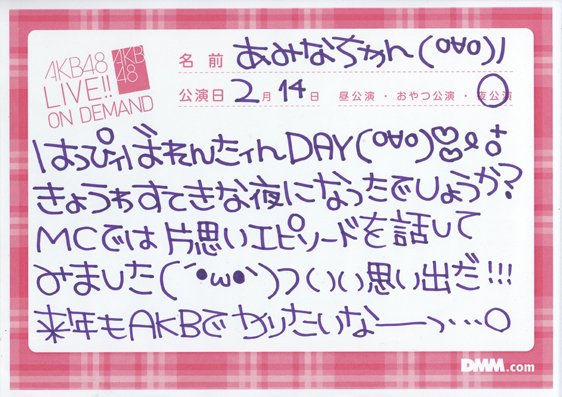 AKB48
LIVE!!
ON DEMAND
AKB
48
名前 あみなちゃん(o∀o)ノ
公演日 2月14日 昼公演・おやつ公演・夜公演
はっぴぃばれんたいんDAY(o∀o)♡
きょうもすてきな夜になったでしょうか?
MCでは片思いエピソードを話して
みました(´•ω•`)っいい思い出だ!!!
来年もAKBでやりたいなーっ…○
DMM.com